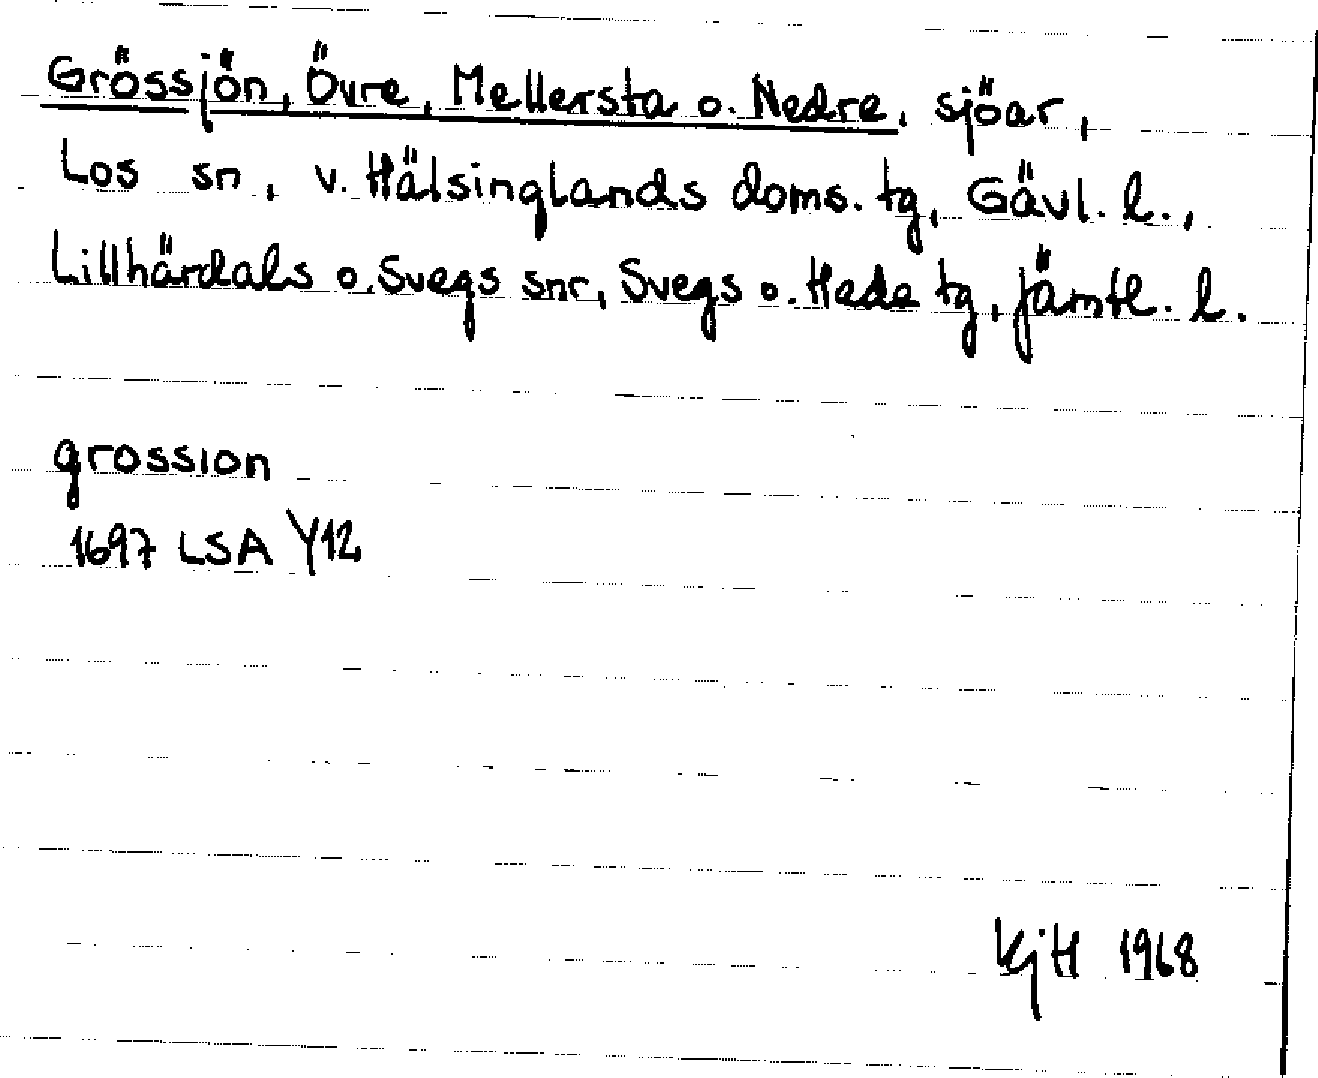 Grössjön, Övre, Mellersta o. Nedre, sjöar,
Los sn, v. Hälsinglands doms. tg, Gävl. l.,
Lillhärdals o. Svegs snr, Svegs o. Hede tg, Jämtl. l.
grossion
1697 LSA Y12
KjH 1968